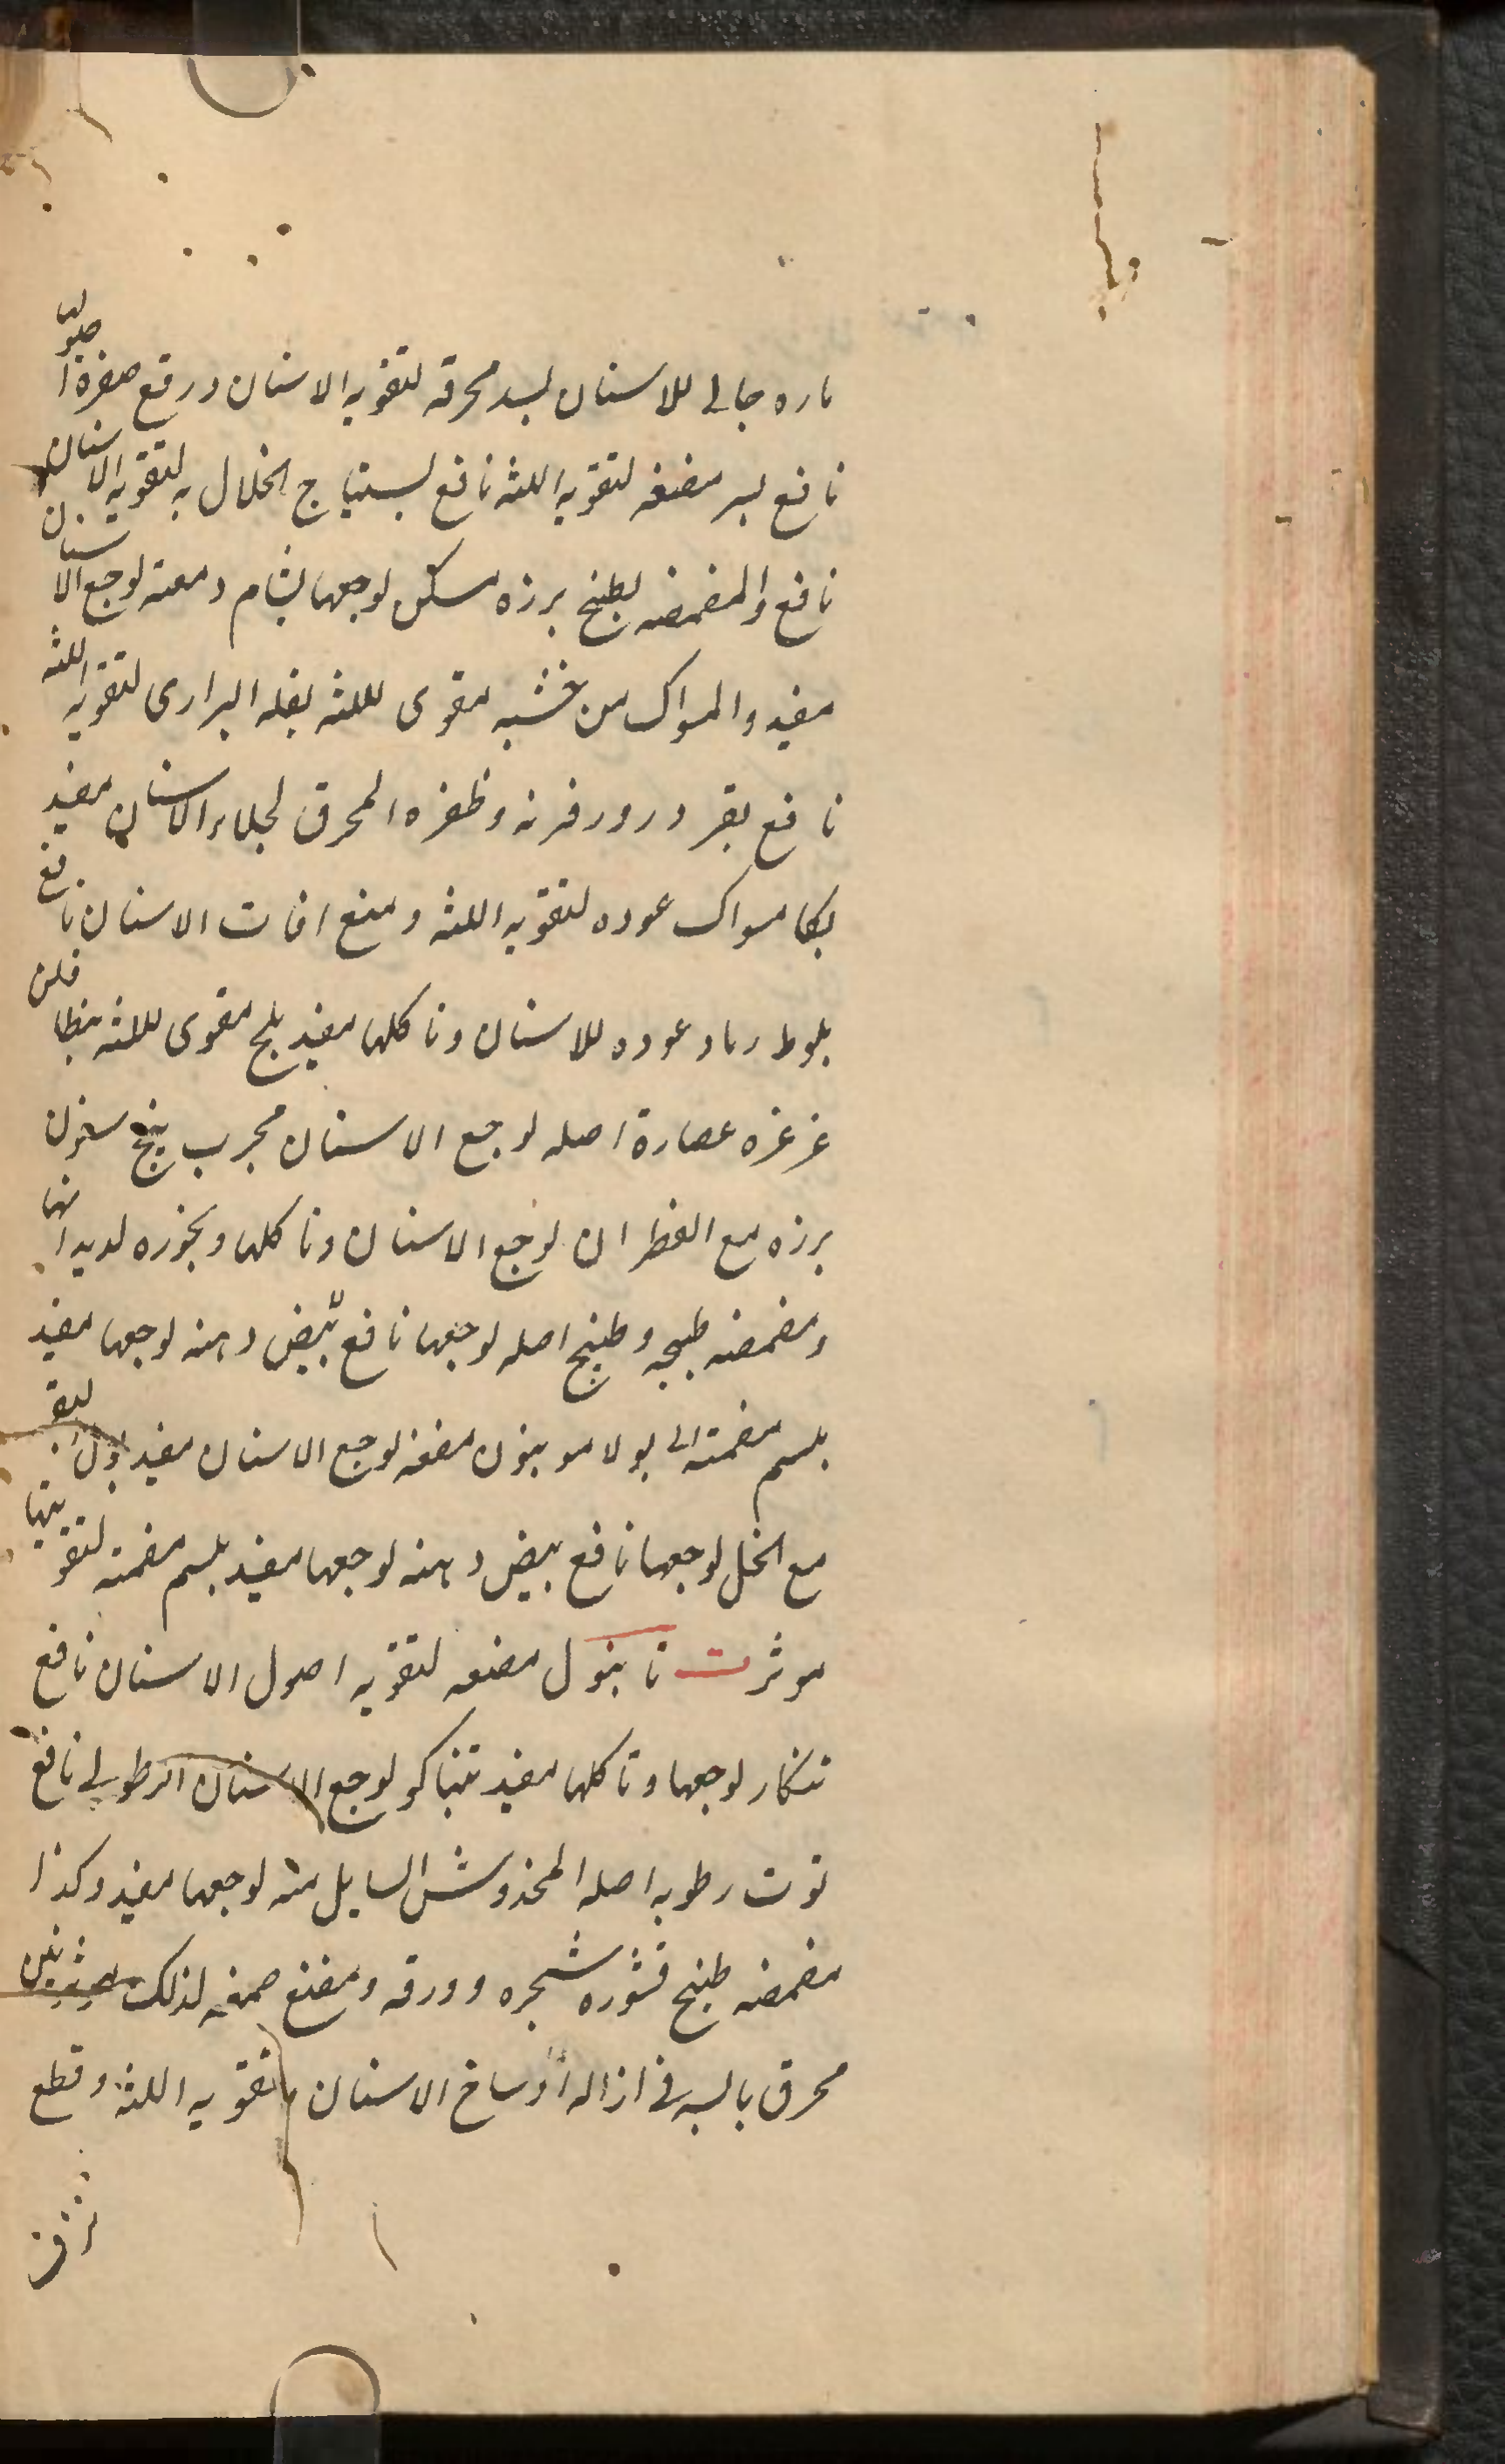 ناره جالى للاسنان بسد محرقه لتقويه الاسنان ورفع صفرة اصولها
نافع بسر مضغه لتقويه اللثه نافع بستياج الخلال به لتقويه الاسنان
نافع والمضمضه بطبخ برزه مسكن لوجعها بشام دمعته لوجع الاسنان
مفيد والمسواك من خشبه مقوى لللثه بقله البرارى لتقويه اللثه
نافع بقر ذرور قرنه وظفره المحرق لجلاء الاسنان مفيد
بكا مسواك عوده لتقويه اللثه ومنع افات الاسنان نافع
بلوط رماد عوده للاسنان وتاكلها مفيد بلح مقوى لللثه بنطافلن
غرغره عصارة اصله لوجع الاسنان مجرب بنج سنون
برزه مع القطران لوجع الاسنان وتاكلها وبخوره لديدانها
ومضمضه طبخه وطبيخ اصله لوجعها نافع بيض دهنه لوجعها مفيد
بلسم مضمته الى بولا موبنون مضغه لوجع الاسنان مفيد بول
مع الخل لوجعها نافع بيض دهنه لوجعها مفيد بلسم مضمته لتقويتها
موثر ت تابنول مضغه لتقويه اصول الاسنان نافع
تنكار لوجعها وتاكلها مفيد تنباكو لوجع الاسنان الرطوبى نافع
توت رطوبه اصله المخدوش السايل منه لوجعها مفيد وكذا
مضمضه طبخ قشوره شجره وورقه ومضغ صمغه لذلك
محرق بالسه فى ازاله اوساخ الاسنان وتقويه اللثه وقطع